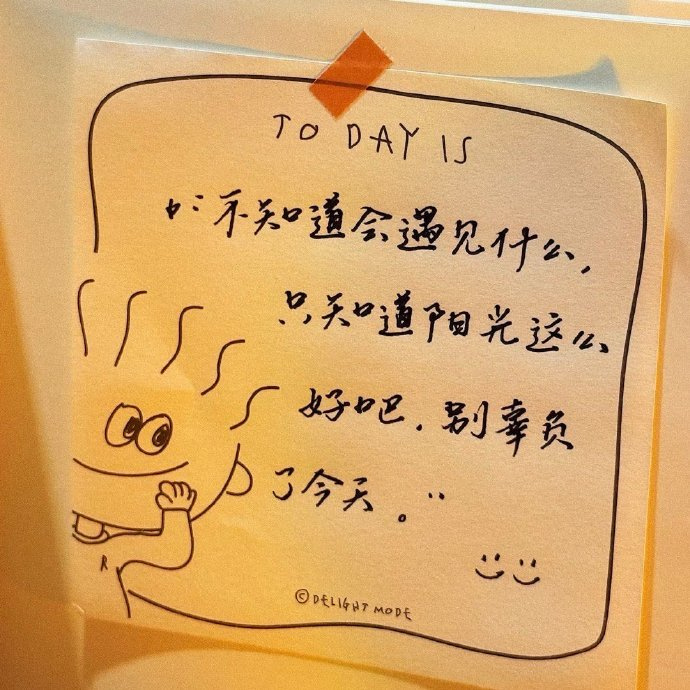 TO DAY IS
“不知道会遇见什么，
只知道阳光这么
好吧，别辜负
了今天。”
R
©DELIGHT MODE